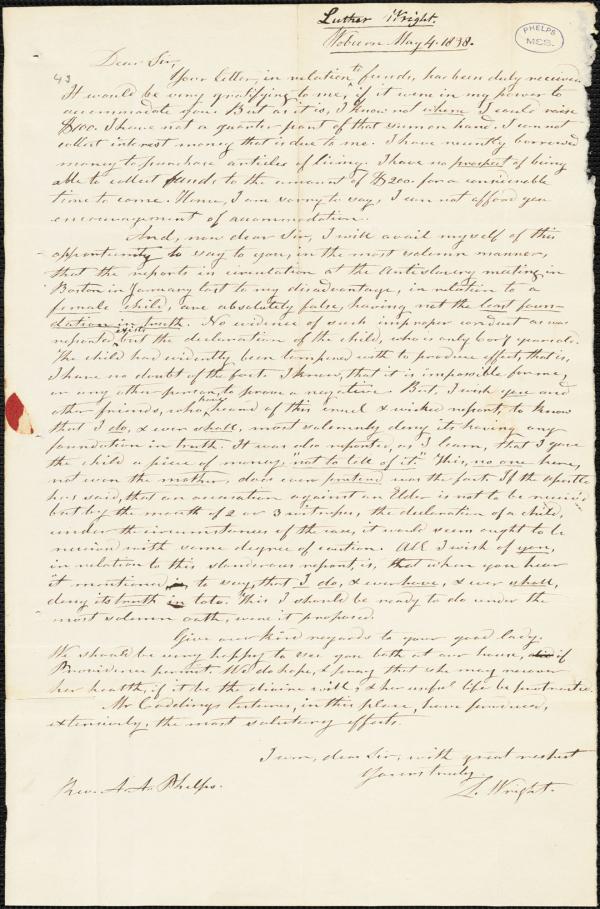 Luther Wright.
Woburn May 4. 1838.
PHELPS
MSS.
43
Dear Sir,
Your letter, in relation to funds, has been duly received.
It would be very gratifying to me, if it were in my power to
accommodate you. But as it is, I know not where I could raise
$100. I have not a quarter part of that sum on hand. I can not
collect interest money that is due to me. I have recently borrowed
money to purchase articles of living. I have no prospect of being
able to collect funds to the amount of $200. for a considerable
time to come. Hence, I am sorry to say, I can not afford you
encouragement of accommodation.
And, now dear Sir, I will avail myself of this
opportunity to say to you, in the most solemn manner,
that the reports in circulation at the Antislavery meeting in
Boston in January last to my disadvantage, in relation to a
female child, are absolutely false, having not the least foun-
dation in truth. No evidence of such improper conduct as was
reported exists but the declaration of the child, who is only 6 or 7 years old.
The child had evidently been tampered with to produce effect, that is,
I have no doubt of the fact. I know, that it is impossible for me,
or any other person, to prove a negative. But, I wish you and
other friends, who have heard of this cruel & wicked report, to know
that I do, & ever shall, most solemnly deny its having any
foundation in truth. It was also reported, as I learn, that I gave
the child a piece of money, "not to tell of it." This, no one here,
not even the mother, does ever pretend was the fact. If the apostle
has said, that an accusation against an Elder is not to be receiv'd
but by the mouth of 2 or 3 witnesses, the declaration of a child,
under the circumstances of the case, it would seem ought to be
received with some degree of caution. All I wish of you,
in relation to this slanderous report, is, that when you hear
it mentioned, to say, that I do, & ever have, & ever shall,
deny its truth in toto. This I should be ready to do under the
most solemn oath, were it proposed.
Give our kind regards to your good lady.
We should be very happy to see you both at our house, if
Providence permit. We do hope, & pray that she may recover
her health, if it be the divine will, & her useful life be protracted.
Mr Codding's lectures, in this place, have produced,
extensively, the most salutary effects.
I am, dear Sir, with great respect
Yours truly,
L. Wright.
Rev. A. A. Phelps.